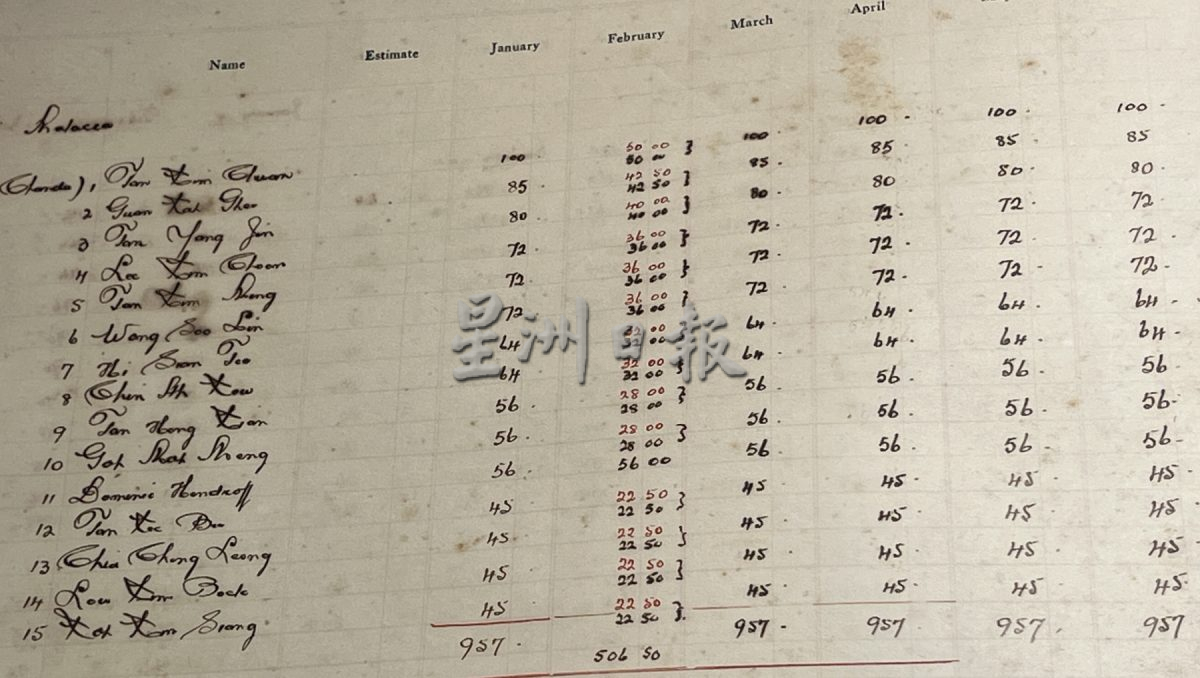 Name Estimate January February March April
Malacca
1 Tan Kim Chuan 100 50 00 } 100 100 100 100
50 00
2 Guan Kah 85 42 50 } 85 85 85 85
42 50
3 Tan Yang Jin 80 40 00 } 80 80 80 80
40 00
4 Lee Kim Choon 72 36 00 } 72 72 72 72
36 00
5 Tan Kim Sheng 72 36 00 } 72 72 72 72
36 00
6 Wong Soo Lin 72 36 00 } 72 72 72 72
36 00
7 Hi Sian Teo 64 32 00 64 64 64 64
8 Chin 64 32 00 } 64 64 64 64
32 00
9 Tan Hong Kian 56 28 00 } 56 56 56 56
28 00
10 Goh 56 28 00 } 56 56 56 56
28 00
11 Dominic Hendroff 56 56 00 56 56 56 56
12 Tan Kee 45 22 50 } 45 45 45 45
22 50
13 Chia Chong Leong 45 22 50 } 45 45 45 45
22 50
14 Low Kim Bock 45 22 50 } 45 45 45 45
22 50
15 Koh Kim Siang 45 22 50 } 45 45 45 45
22 50
957 506 50 957 957 957 957
星洲日報